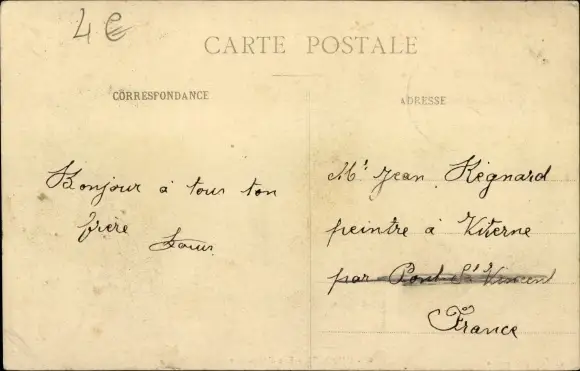 4€
CARTE POSTALE
CORRESPONDANCE
ADRESSE
Bonjour à tous ton
frère
Louis
Mr Jean Régnard
peintre à Viterne
par Pont St Vincent
France